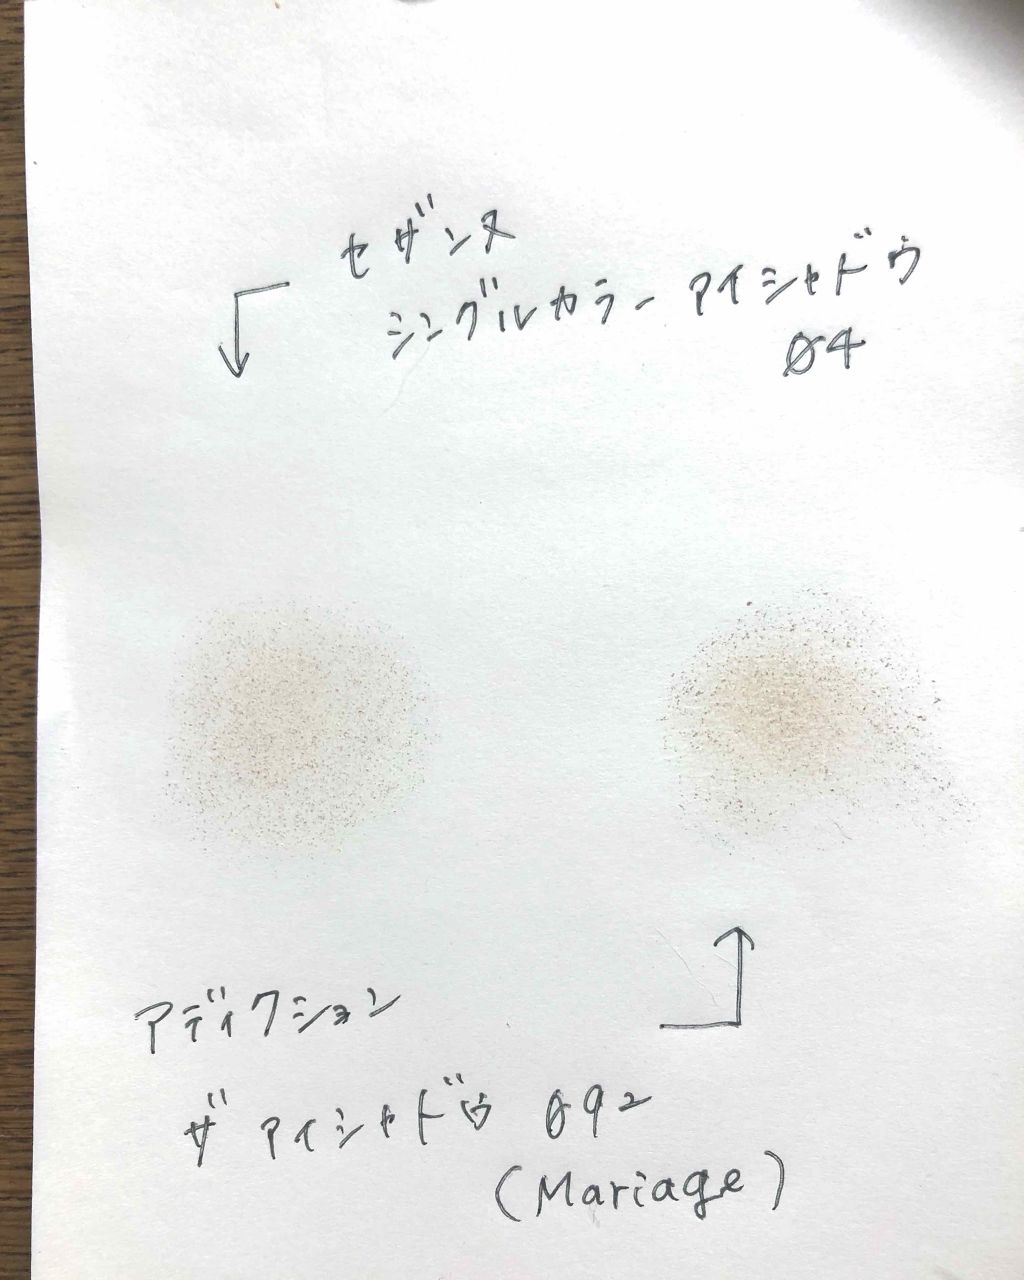 セザンヌ
シングルカラー アイシャドウ
04
アディクション
ザ アイシャドウ 092
(Mariage)